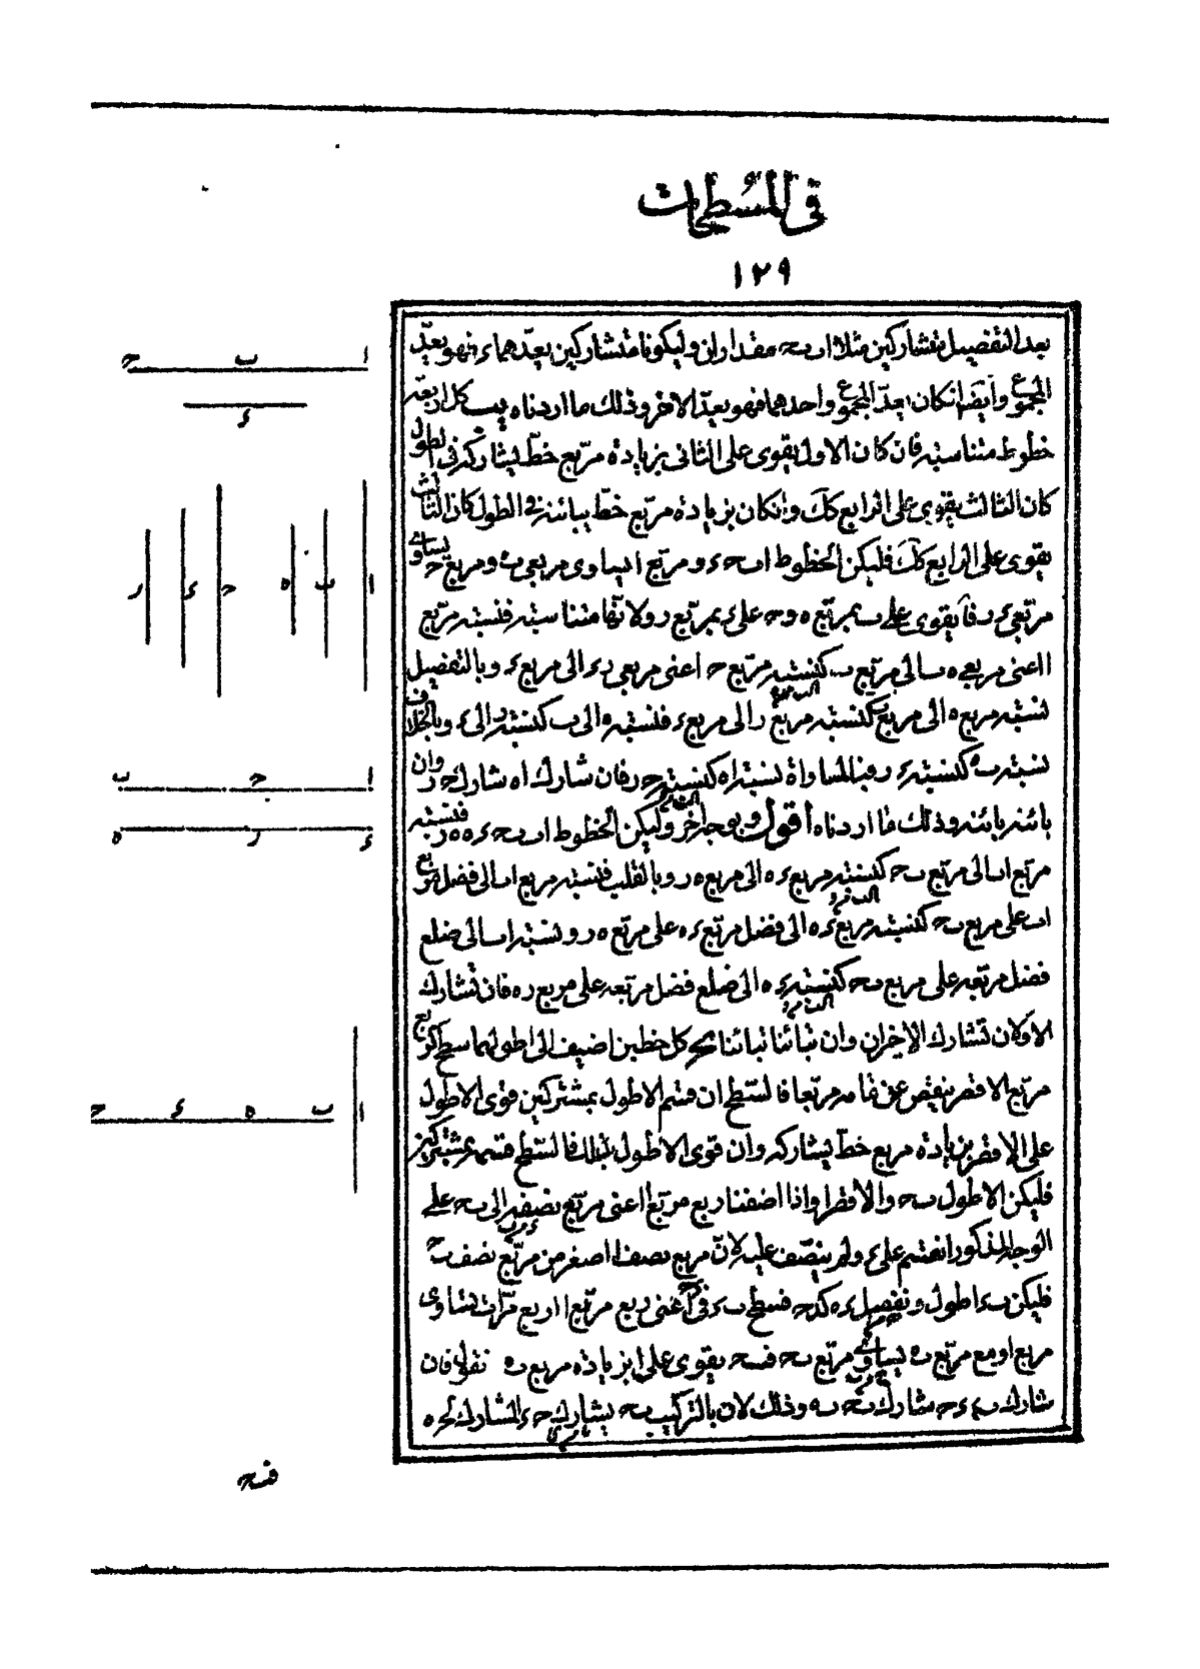 في المسطحات
١٢٩
بعد التفصيل متشاركين مثلا اب ب‍ه مقداران وليكونا متشاركين يعدهما ء فهو يعد
المجموع وايضا انكان يعد المجموع واحدهما فهو يعد الاخر وذلك ما اردناه كل اربعة
خطوط متناسبة فان كان الاول يقوى على الثاني بزيادة مربع خط يشاركه في الطول
كان الثالث يقوى على الرابع كك وانكان بزيادة مربع خط يباينه في الطول كان الثالث
يقوى على الرابع كك فليكن الخطوط ا ب ح ء ومربع ا يساوى مربعى ب ه ومربع ح يساوى
مربعى ء ر فا يقوى على ب بمربع ه و ح على ء بمربع ر ولانها متناسبة فنسبة مربع
ا اعنى مربعى ه ب الى مربع ب كنسبة مربع ح اعنى مربعى ر ء الى مربع ء وبالتفصيل
نسبة مربع ه الى مربع ب كنسبة مربع ر الى مربع ء فنسبة ه الى ب كنسبة ر الى ء وبالخلاف
نسبة ب ه كنسبة ء ر وبالمساواة نسبة ا ه كنسبة ح ر فان شارك ا ه شارك ح ر وان
باينه باينه وذلك ما اردناه اقول وبوجه آخر وليكن الخطوط اب ب‍ح ء ه ه ر فنسبة
مربع اب الى مربع ب‍ح كنسبة مربع ء ه الى مربع ه ر وبالقلب فنسبة مربع اب الى فضل مربع
اب على مربع ب‍ح كنسبة مربع ء ه الى فضل مربع ء ه على مربع ه ر ونسبة اب الى ضلع
فضل مربعه على مربع ب‍ح كنسبة ء ه الى ضلع فضل مربعه على مربع ر ه فان تشارك
الاولان تشارك الاخيران وان تباينا تباينا كل خطين اضيف الى اطولهما سطح كربع
مربع الاقصر ينقص عن تمامه مربعا فالسطح ان قسم الاطول بمشتركين قوى الاطول
على الاقصر بزيادة مربع خط يشاركه وان قوى الاطول كذلك فالسطح قسمه بمشتركين
فليكن الاطول ب‍ح والاقصر ا واذا اضفنا ربع مربع ا اعنى مربع نصفه الى ب‍ح على
الوجه المذكور انقسم على ء ولم ينتصف عليه لان مربع نصف ا اصغر من مربع نصف ب‍ح
فليكن ب‍ء اطول ونفصل ء ه ك‍ء ح فسطح ب‍ء في ء ح اعنى ربع مربع ا اربع مرات تساوى
مربع ا ومع مربع ب‍ه يساوى مربع ب‍ح فب‍ح يقوى على ا بزيادة مربع ب‍ه نقول فان
شارك ب‍ء ء ح شارك ب‍ح ب‍ه وذلك لان بالتركيب ب‍ح يشارك ح ء المشارك لح ه
فب‍ح
ا ب ح
ء
ا ب ه ح ء ر
ا ح ب
ء ر ه
ا ب ه ء ح